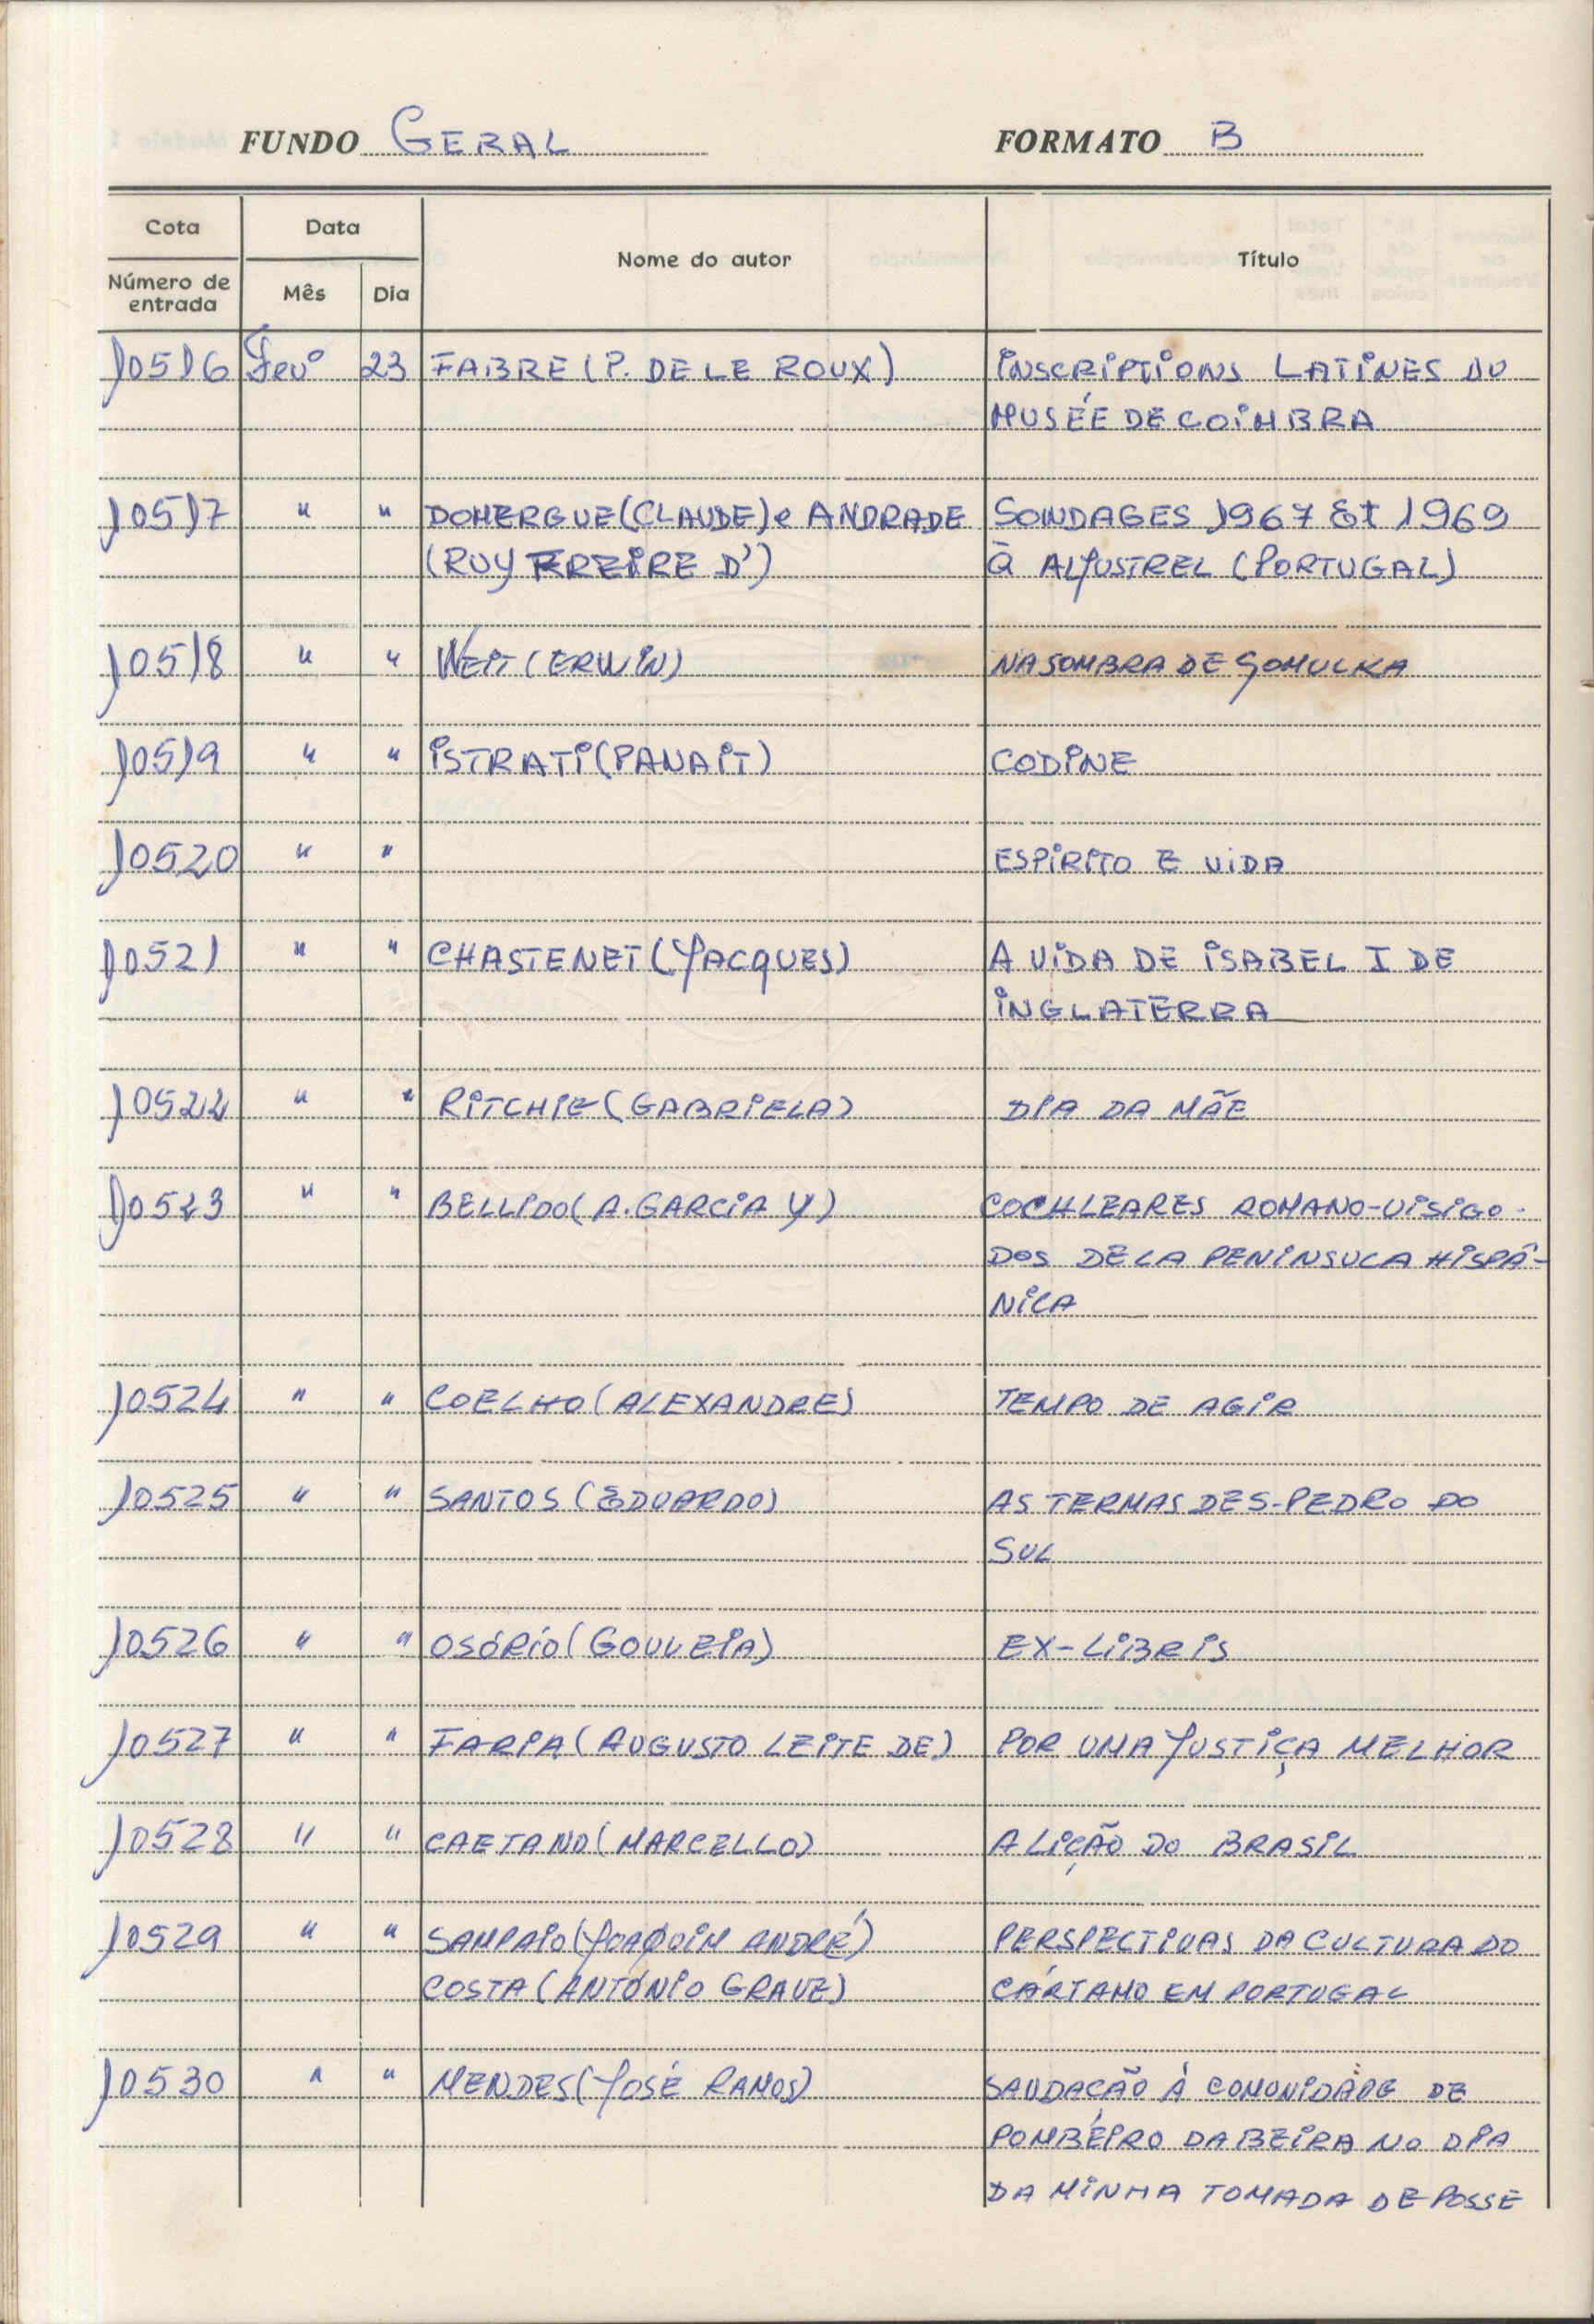 FUNDO GERAL FORMATO B
Cota Data Nome do autor Título
Número de entrada Mês Dia
10516 Fevº 23 FABRE (P. DE LE ROUX) INSCRIPTIONS LATINES DU
MUSÉE DE COIMBRA
10517 " " DOMERGUE (CLAUDE) e ANDRADE SONDAGES 1967 Et 1969
(RUY FREIRE D') À ALJUSTREL (PORTUGAL)
10518 " " WEIT (ERWIN) NA SOMBRA DE GOMULKA
10519 " " ISTRATI (PANAIT) CODINE
10520 " " ESPIRITO E VIDA
10521 " " CHASTENET (JACQUES) A VIDA DE ISABEL I DE
INGLATERRA
10522 " " RITCHIE (GABRIELA) DIA DA MÃE
10523 " " BELLIDO (A. GARCIA Y) COCHLEARES ROMANO-VISIGO-
DOS DE LA PENINSULA HISPÂ-
NICA
10524 " " COELHO (ALEXANDRE) TEMPO DE AGIR
10525 " " SANTOS (EDUARDO) AS TERMAS DE S-PEDRO DO
SUL
10526 " " OSÓRIO (GOUVEIA) EX-LIBRIS
10527 " " FARIA (AUGUSTO LEITE DE) POR UMA JUSTIÇA MELHOR
10528 " " CAETANO (MARCELLO) A LIÇÃO DO BRASIL
10529 " " SAMPAIO (JOAQUIM ANDRÉ) PERSPECTIVAS DA CULTURA DO
COSTA (ANTÓNIO GRAVE) CÁRTAMO EM PORTUGAL
10530 " " MENDES (JOSÉ RAMOS) SAUDAÇÃO À COMUNIDADE DE
POMBEIRO DA BEIRA NO DIA
DA MINHA TOMADA DE POSSE